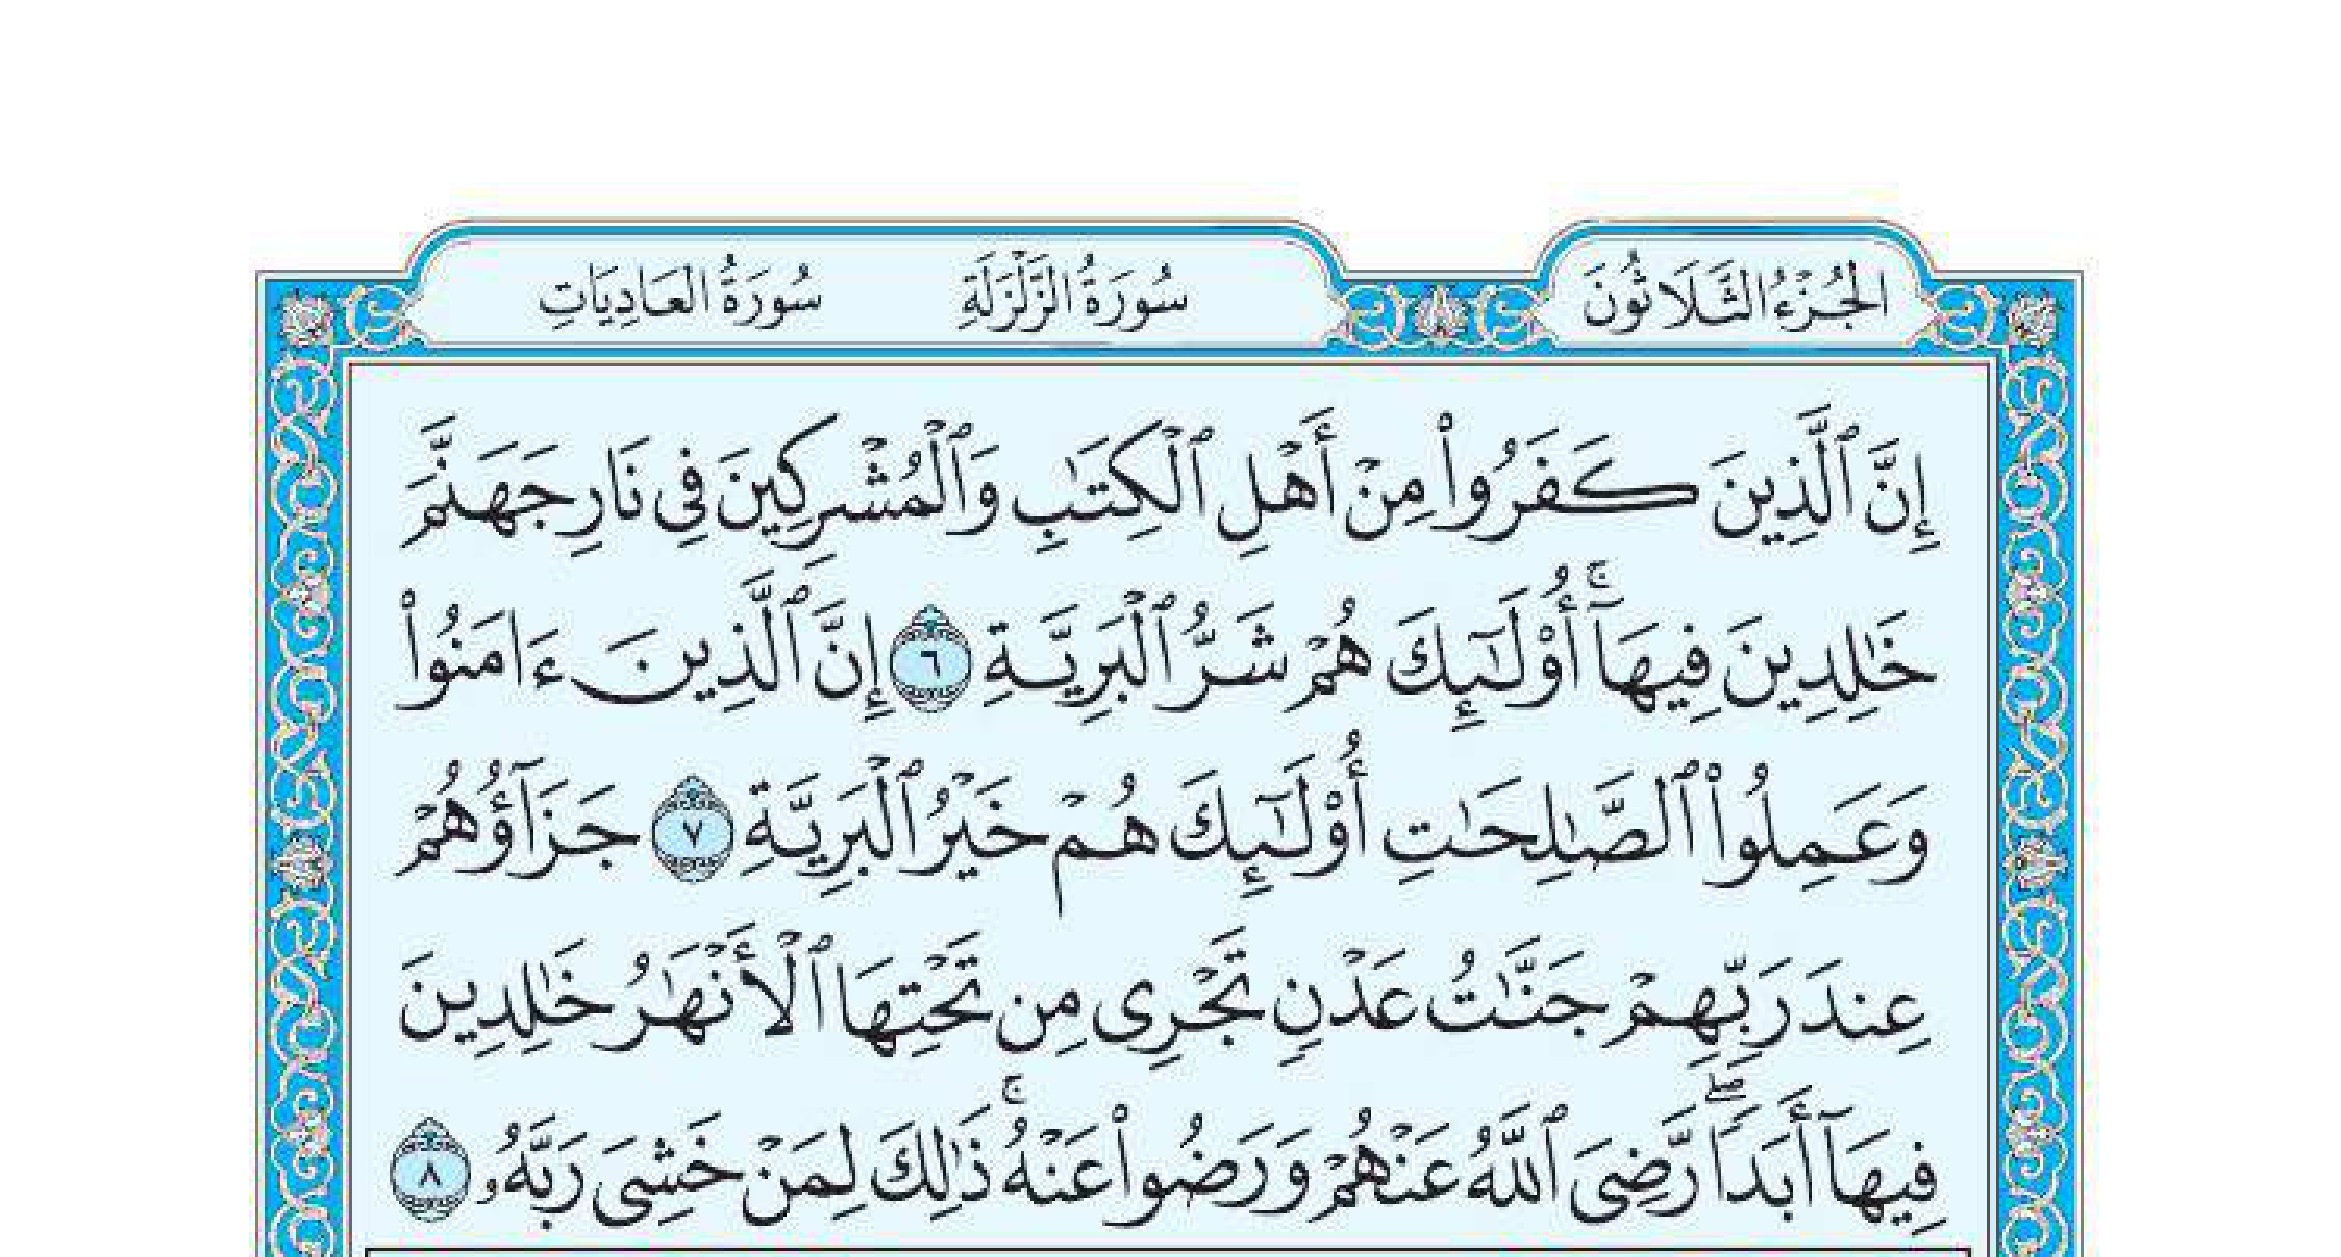 الجُزْءُ الثَّلَاثُونَ سُورَةُ الزَّلْزَلَةِ سُورَةُ العَادِيَاتِ
إِنَّ ٱلَّذِينَ كَفَرُوا۟ مِنْ أَهْلِ ٱلْكِتَـٰبِ وَٱلْمُشْرِكِينَ فِى نَارِ جَهَنَّمَ
خَـٰلِدِينَ فِيهَآ ۚ أُو۟لَـٰٓئِكَ هُمْ شَرُّ ٱلْبَرِيَّةِ ٦ إِنَّ ٱلَّذِينَ ءَامَنُوا۟
وَعَمِلُوا۟ ٱلصَّـٰلِحَـٰتِ أُو۟لَـٰٓئِكَ هُمْ خَيْرُ ٱلْبَرِيَّةِ ٧ جَزَآؤُهُمْ
عِندَ رَبِّهِمْ جَنَّـٰتُ عَدْنٍ تَجْرِى مِن تَحْتِهَا ٱلْأَنْهَـٰرُ خَـٰلِدِينَ
فِيهَآ أَبَدًا ۖ رَّضِىَ ٱللَّهُ عَنْهُمْ وَرَضُوا۟ عَنْهُ ۚ ذَٰلِكَ لِمَنْ خَشِىَ رَبَّهُۥ ٨